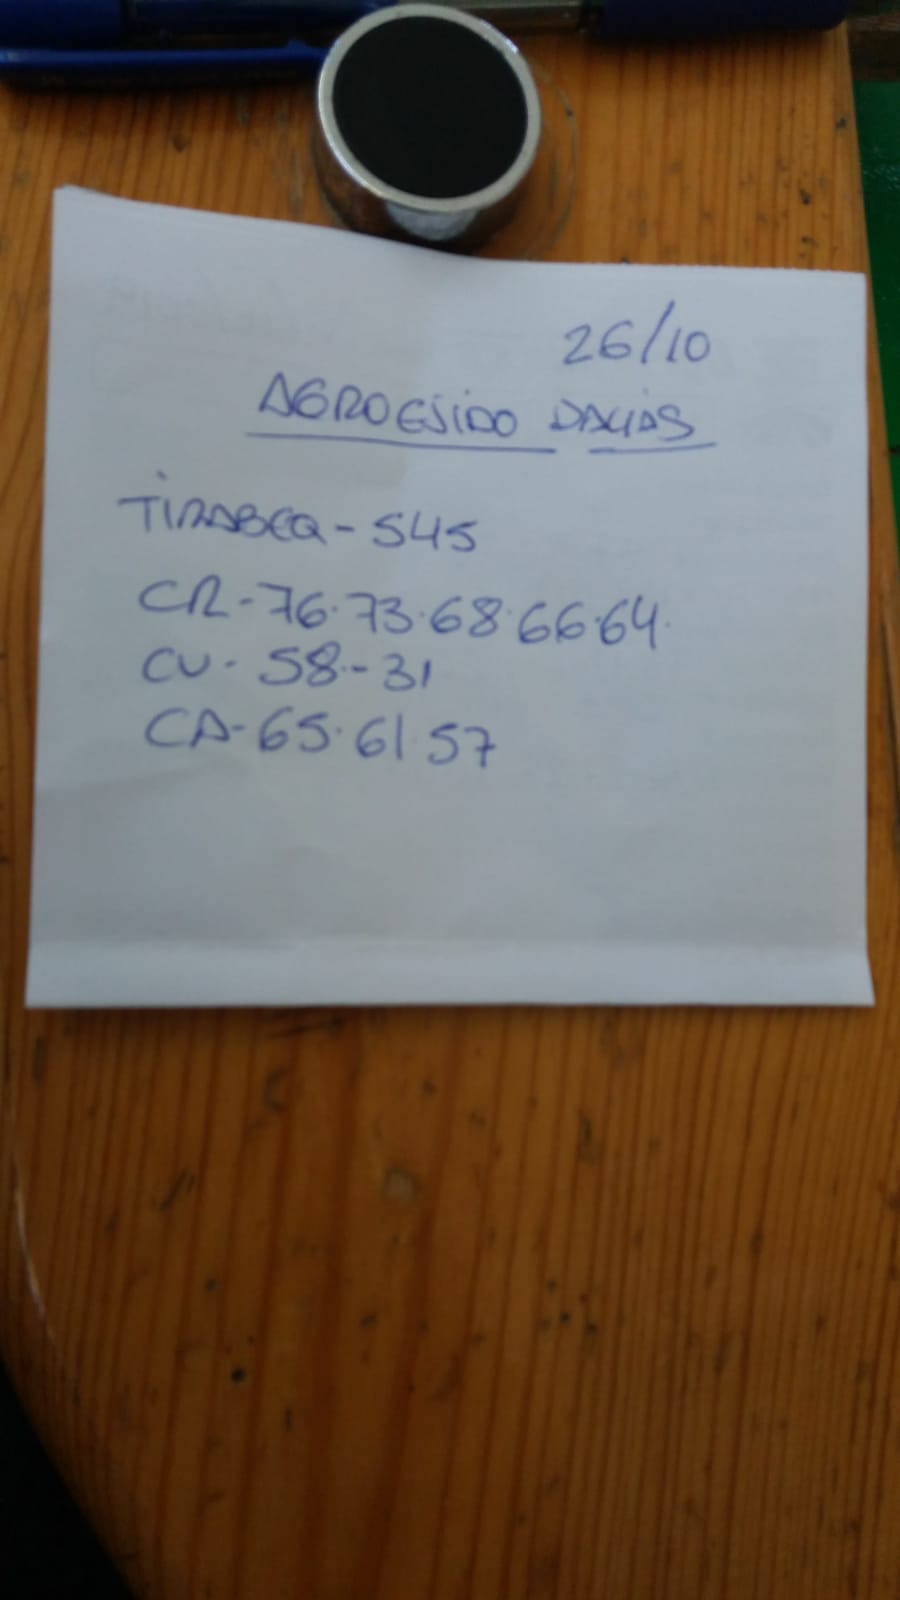 26/10
AGROEJIDO DALIAS
TIRABEQ - 545
CR - 76.73.68.66.64.
CU - 58 - 31
CA - 65.61.57